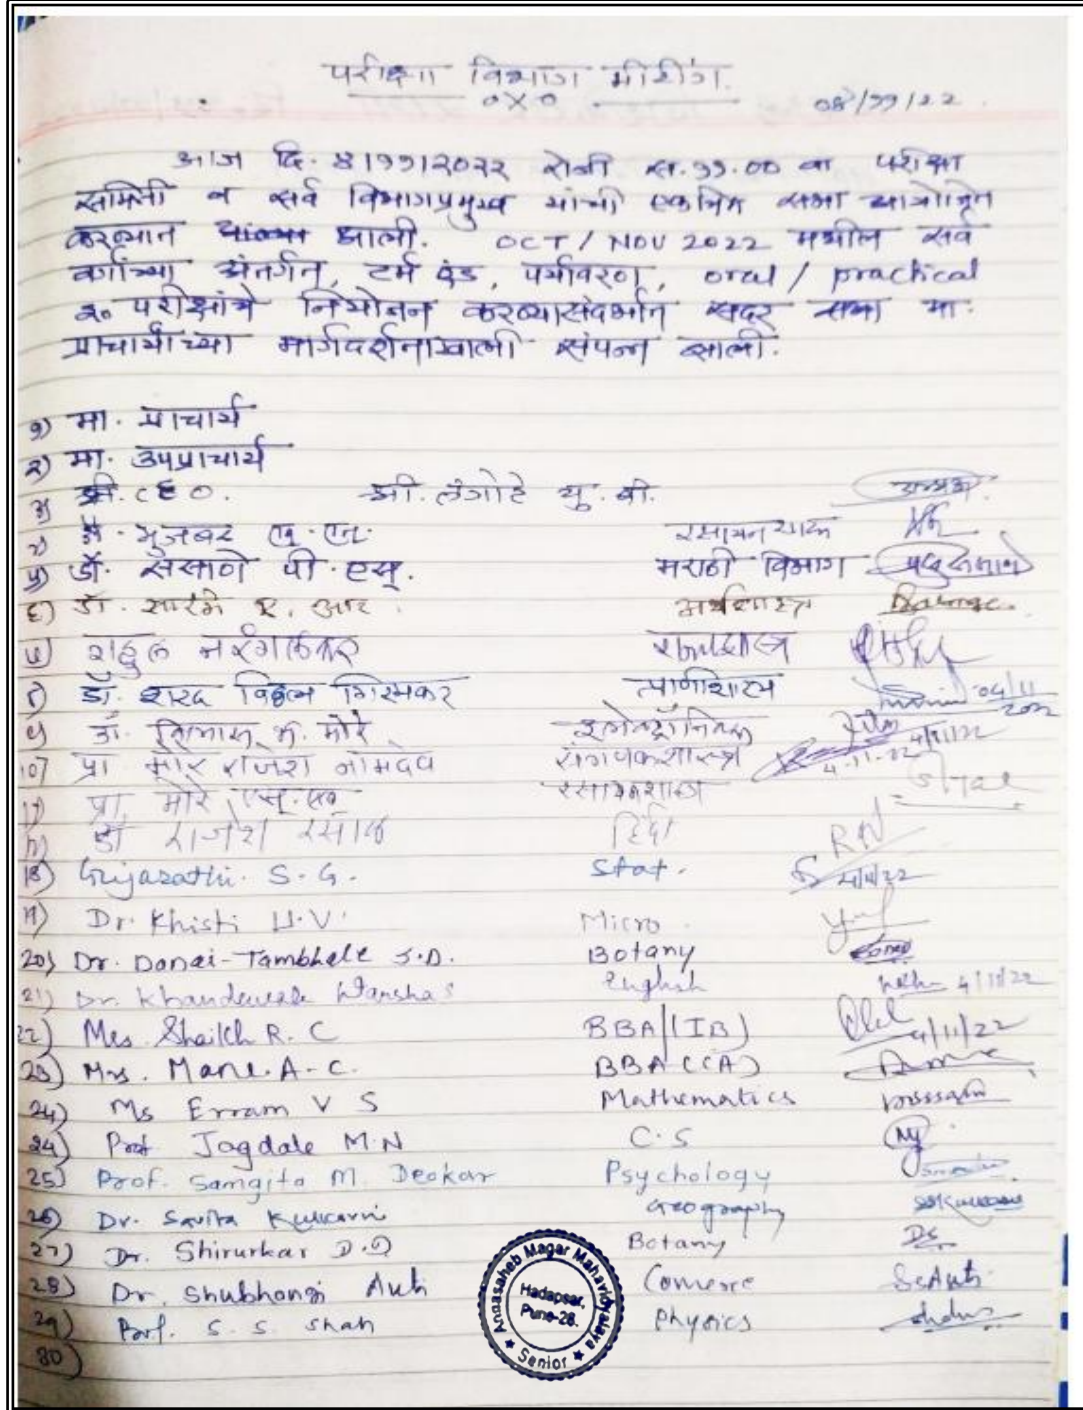 परीक्षा विभाग मीटींग.
०X०
०४/११/२२.
आज दि. ४।११।२०२२ रोजी स.११.०० वा परीक्षा
समिती व सर्व विभागप्रमुख यांची एकत्रित सभा आयोजित
करण्यात आली. OCT/NOV 2022 मधील सर्व
वर्गांच्या अंतर्गत, टर्म एंड, पर्यावरण, oral / practical
इ० परीक्षांचे नियोजन करण्यासंदर्भात सदर सभा मा.
प्राचार्यांच्या मार्गदर्शनाखाली संपन्न झाली.
१) मा. प्राचार्य
२) मा. उपप्राचार्य
३) श्री. CEO. श्री. लंगोटे यु. बी.
४) मुजबर ए. एन. रसायनशास्त्र
५) डॉ. ससाणे पी. एस्. मराठी विभाग
६) डॉ. ए. आर. अर्थशास्त्र
७) राहुल नरंगलकर
८) डॉ. शरद विठ्ठल गिरमकर प्राणीशास्त्र 04/11 2022
९) डॉ. मोरे इलेक्ट्रॉनिक्स 4/11/22
10) प्रा मोरे राजेश नामदेव संगणकशास्त्र 4-11-22
11) प्रा. मोरे एस. एल रसायनशास्त्र
डॉ राजेश रसाळ हिंदी RN
18) Gujarathi. S. G. Stat. 4/11/22
19) Dr. Khisti U.V. Micro
20) Dr. Danai-Tambhale S.D. Botany
21) Dr. Khandewale Warsha S English 4/11/22
22) Mes. Shaikh R. C BBA(IB) 4/11/22
23) Mrs. Mane. A. C. BBA (CA)
24) Ms Erram V S Mathematics
24) Prof Jagdale M.N C.S
25) Prof. Samgita M. Deokar Psychology
26) Dr. Savita Kulkarni Geography
27) Dr. Shirurkar D.D Botany DS
28) Dr. Shubhangi Auti Comerce
29) Prof. S. S. Shah Physics
30)
Annasaheb Magar Mahavidyalaya
Hadapsar,
Pune-28.
★ Senior ★